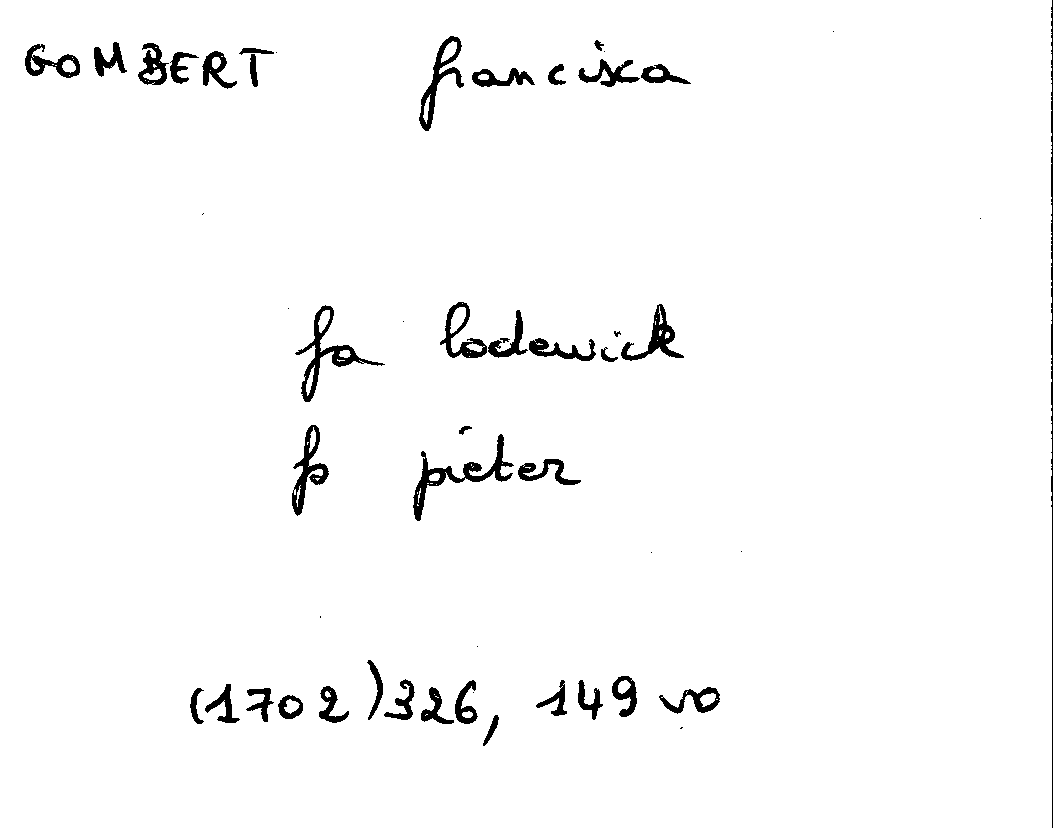 GOMBERT francisca
fa lodewick
fs pieter
(1702) 326, 149 vo